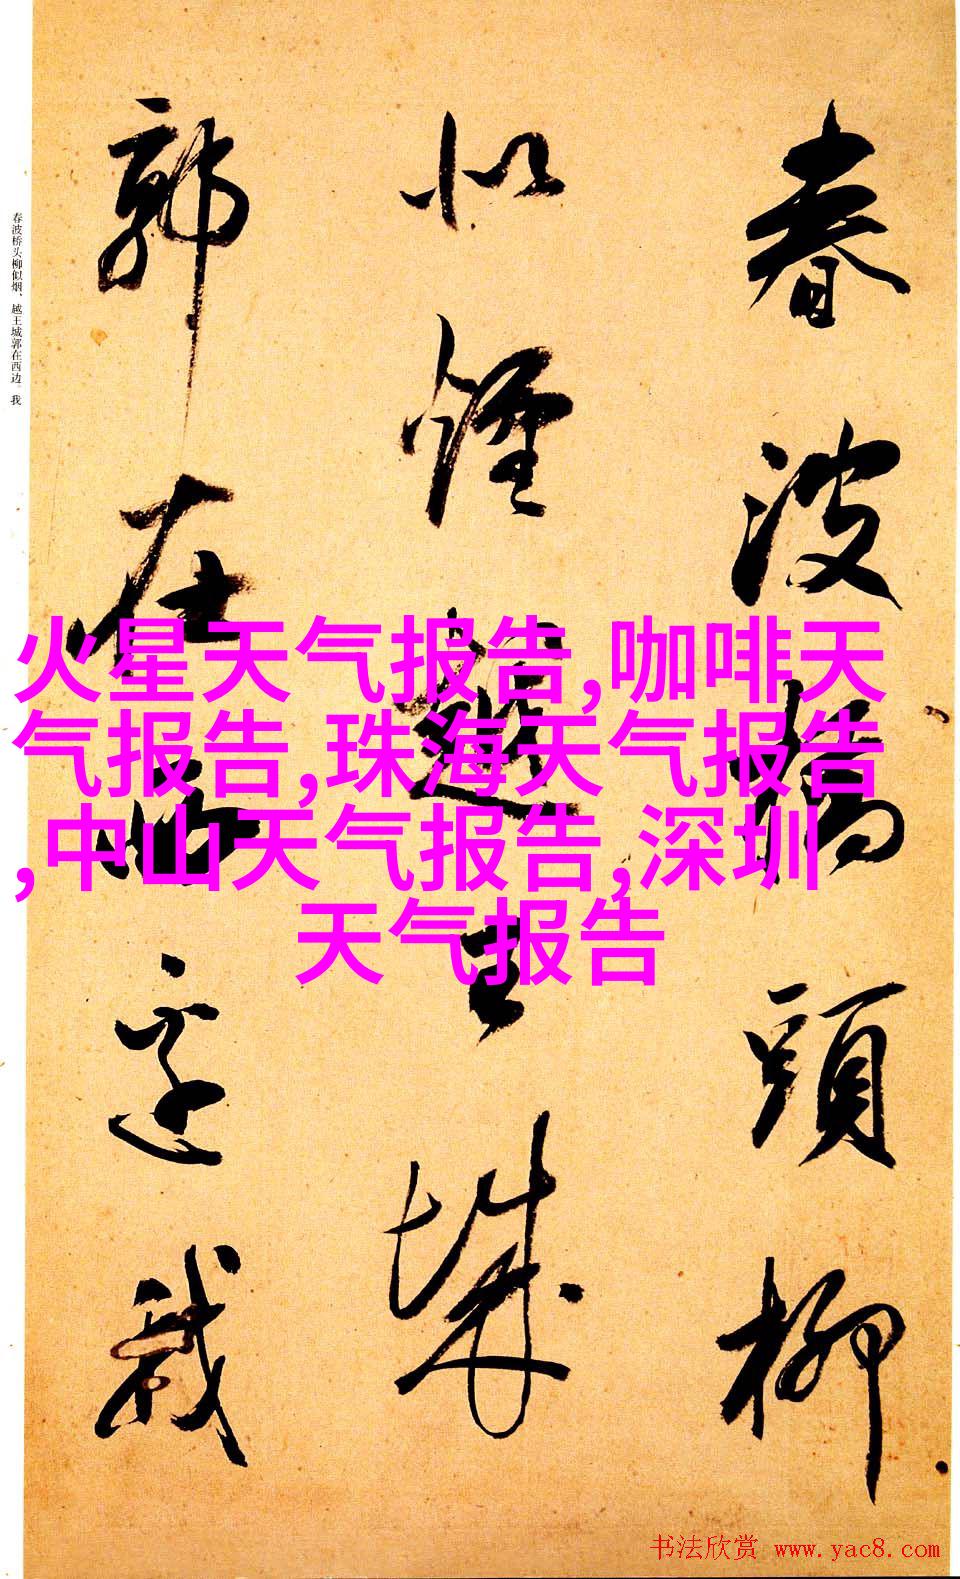 春波橋頭柳
似煙越王城
郭在西邊我
春波桥头柳似烟、越王城郭在西边。我
火星天气报告,咖啡天
气报告,珠海天气报告
,中山天气报告,深圳
天气报告
书法欣赏 www.yac8.com